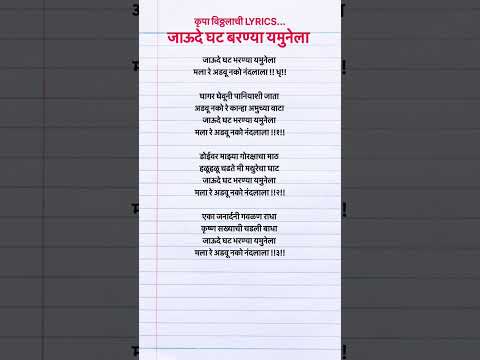 कृपा विठ्ठलाची LYRICS...
जाऊदे घट बरण्या यमुनेला
जाऊदे घट भरण्या यमुनेला
मला रे अडवू नको नंदलाला !! धृ!!
घागर घेवूनी पानियाशी जाता
अडवू नको रे कान्हा अमुच्या वाटा
जाऊदे घट भरण्या यमुनेला
मला रे अडवू नको नंदलाला !!१!!
डोईवर माझ्या गोरक्षाचा माठ
हळूहळू चढते मी मथुरेचा घाट
जाऊदे घट भरण्या यमुनेला
मला रे अडवू नको नंदलाला !!२!!
एका जनार्दनी गवळण राधा
कृष्ण सख्याची चडली बाधा
जाऊदे घट भरण्या यमुनेला
मला रे अडवू नको नंदलाला !!३!!